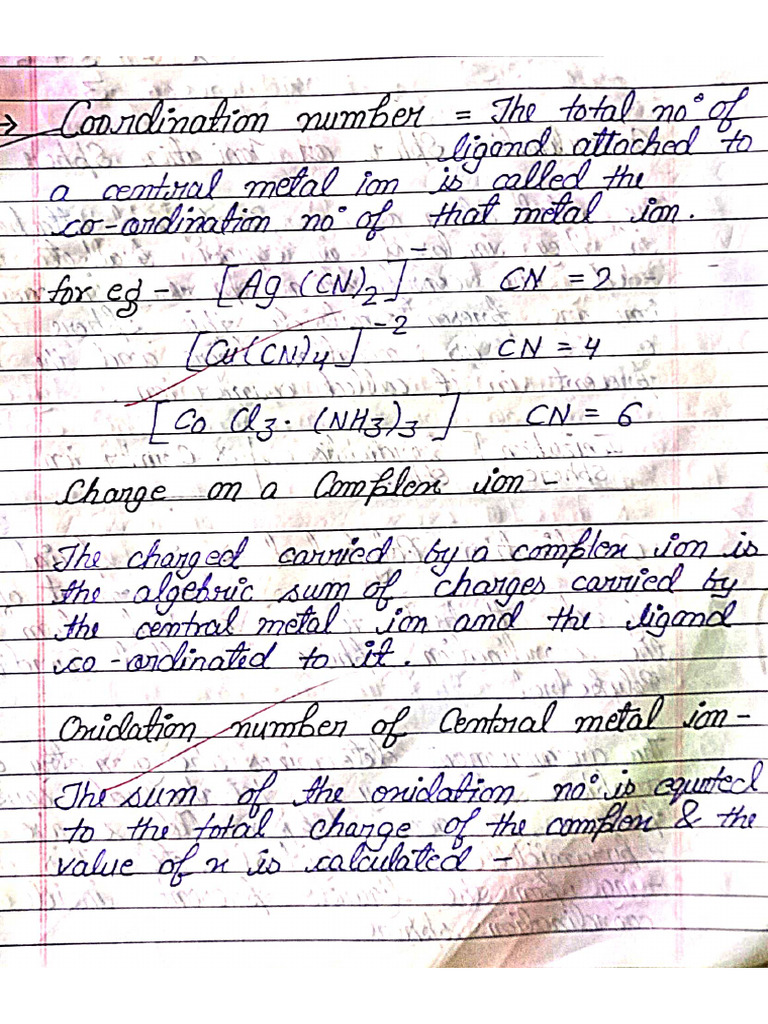 → Coordination number = The total no° of
ligand attached to
a central metal ion is called the
co-ordination no° of that metal ion.
for eg - [Ag (CN)2]⁻ CN = 2
[Cu(CN)4]⁻² CN = 4
[Co Cl3 . (NH3)3] CN = 6
Charge on a Complex ion -
The charged carried by a complex ion is
the algebric sum of charges carried by
the central metal ion and the ligand
co-ordinated to it.
Oxidation number of Central metal ion -
The sum of the oxidation no° is equated
to the total charge of the complex & the
value of x is calculated -